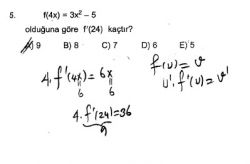 5. f(4x) = 3x² – 5
olduğuna göre f'(24) kaçtır?
A) 9 B) 8 C) 7 D) 6 E) 5
4. f'(4x) = 6x
6 6
4. f'(24) = 36
9
f(u) = v
u'. f'(u) = v'